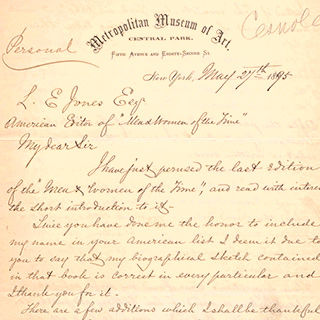 Cesnola
Personal
Metropolitan Museum of Art,
CENTRAL PARK,
FIFTH AVENUE AND EIGHTY-SECOND ST.
New York, May 27th 1895
L. E. Jones Esq.
American Editor of "Men & Women of the Time"
My dear Sir
I have just perused the last edition
of the "Men & Women of the Time", and read with interest
the short introduction to it.
Since you have done me the honor to include
my name in your American list I deem it due to
you to say that my biographical sketch contained
in that book is correct in every particular and
I thank you for it.
There are a few additions which I shall be thankful